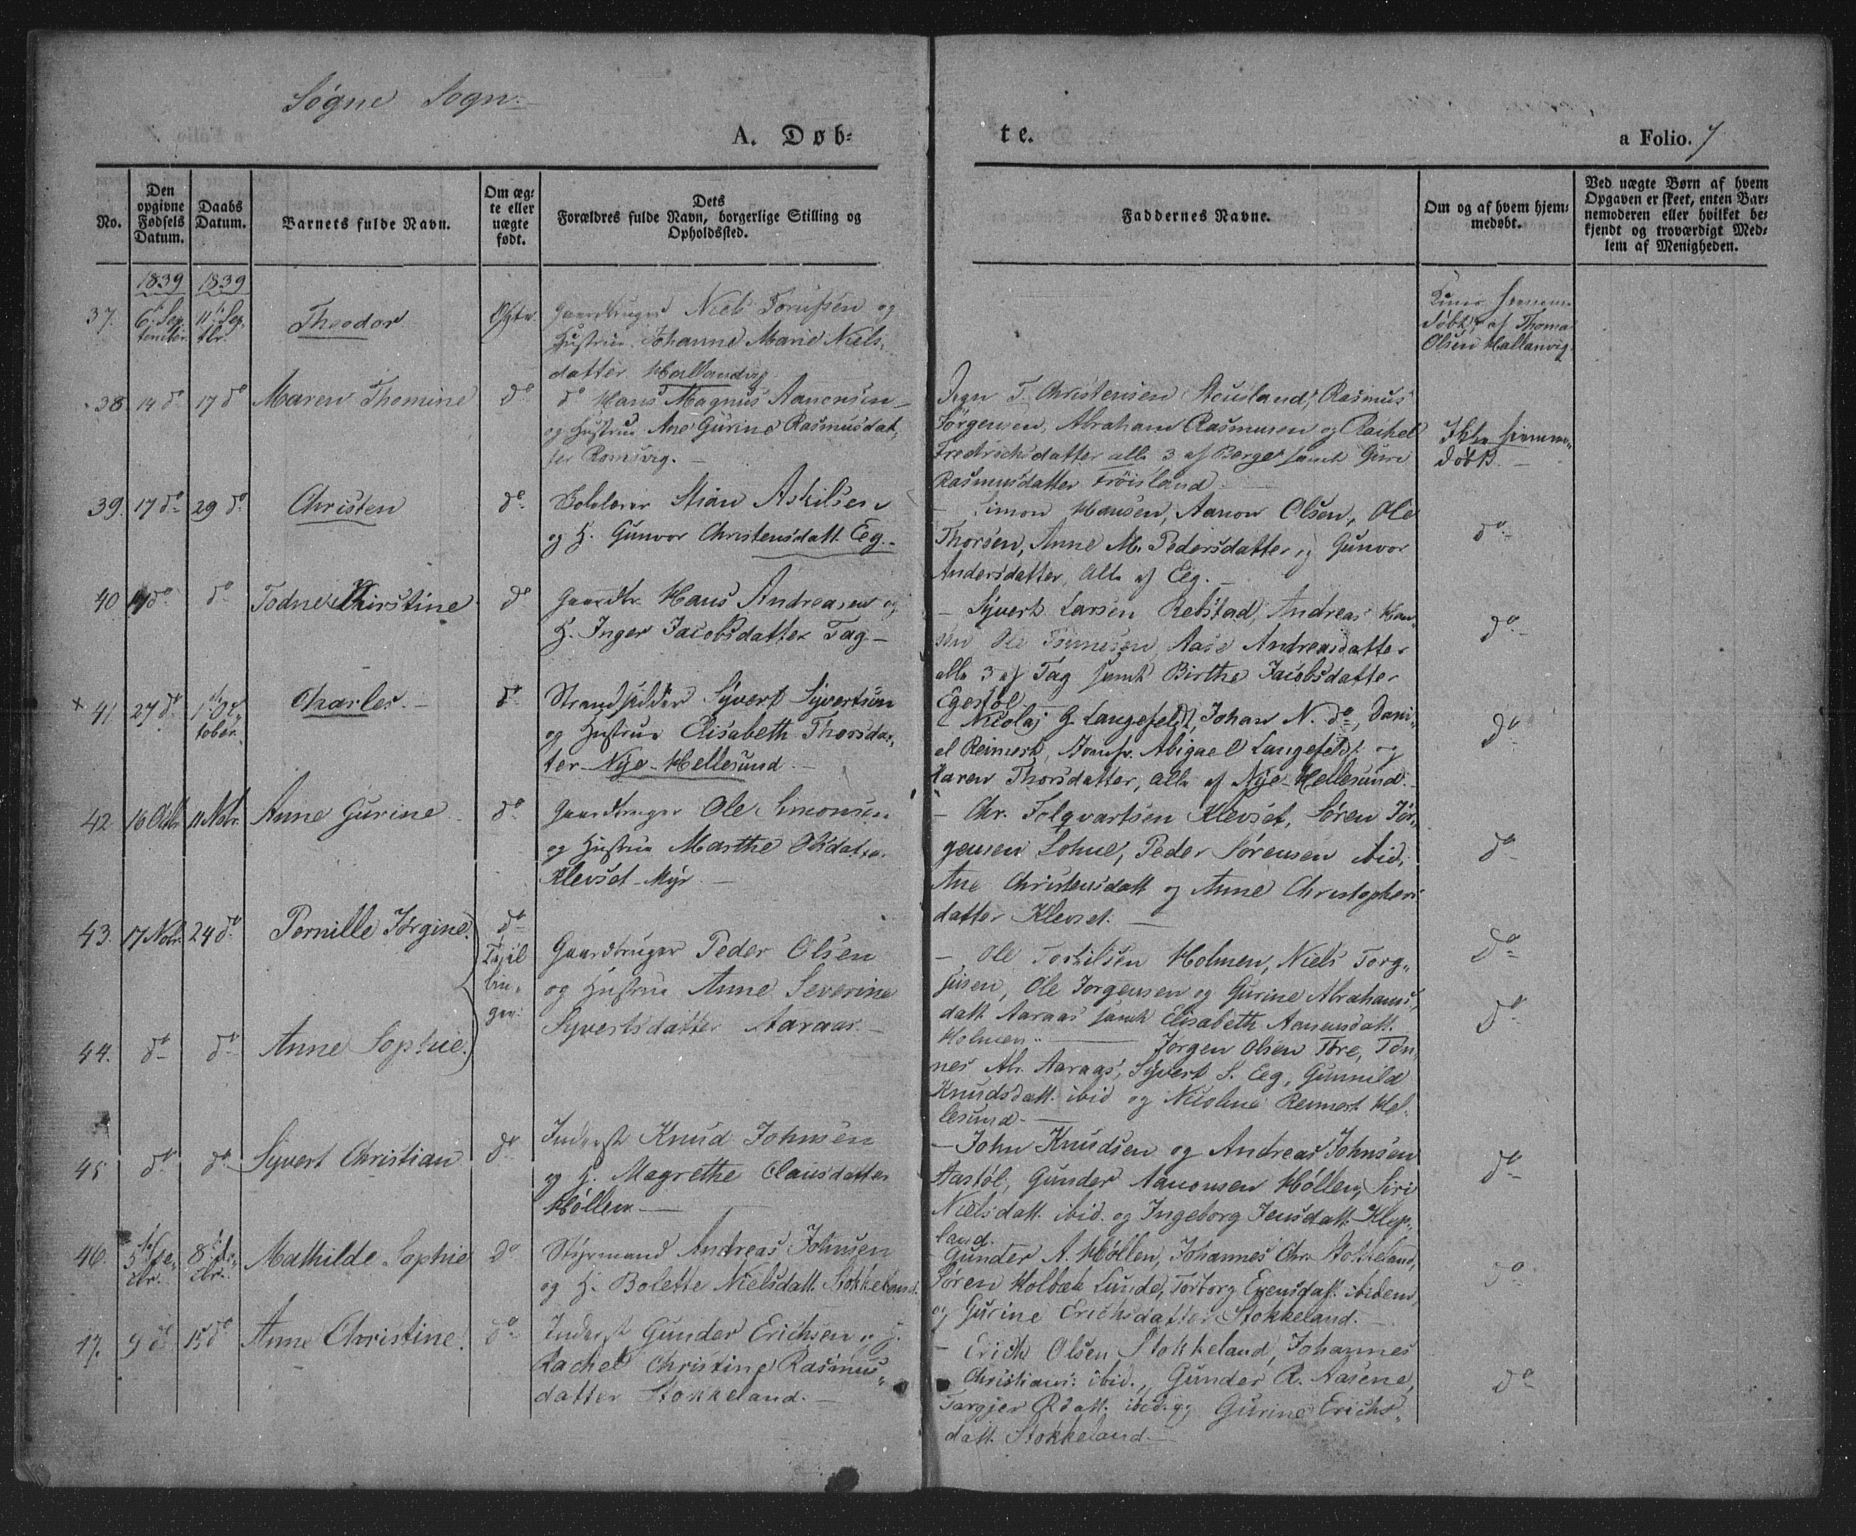 Søgne Sogn.
A. Døb-
te.
a Folio. 7
No.
Den opgivne Fødsels Datum.
Daabs Datum.
Barnets fulde Navn.
Om ægte eller uægte født.
Dets Forældres fulde Navn, borgerlige Stilling og Opholdssted.
Faddernes Navne.
Om og af hvem hjemmedøbt.
Ved uægte Børn af hvem Opgaven er skeet, enten Barnemoderen eller hvilket bekjendt og troværdigt Medlem af Menigheden.
1839 1839
37. 6te September 11te Sepbr. Theodor Ægte Gaardbruger Niels og
Hustrue Johanne Marie Niels-
datter Hallandvig
hjemme-
døbt af Thomas
Olsen Hallanvig.
38 14 do 17 do Maren Thomine do do Hans Magnus Aanonsen
og Hustrue Ane Gurine Rasmusdat-
ter Romsvig.
T. Christensen Stousland, Rasmus
Jørgensen, Abraham Rasmusen og Rachel
Fredrichsdatter alle 3 af Berge samt Guri
Rasmusdatter Tröisland
Ikke hjemme-
døbt.
39. 17 do 29 do Christen do Stian Askilsen
og H. Gunvor Christensdatt. Eeg.
Simon Hansen, Aanon Olsen, Ole
Thorsen, Anne M. Pedersdatter og Gunvor
Andersdatter, alle af Eeg.
do
40 do do Todne Kirstine do Gaardbr. Hans Andreasen og
H. Inger Jacobsdatter Tag
Syvert Larsen Rebstad, Andreas Han-
sen Ole Aase Andreasdatter
alle 3 af Tag samt Birthe Jacobsdatter
Egestöl
do
× 41 27 do 1ste October Charles do Strandsidder Syvert Syvertsen
og Hustrue Elisabeth Thorsdat-
ter Nye-Hellesund
Nicolaj G. Langefeldt, Johan N. do, Dani-
el Reimert, Jomfr. Abigael Langefeldt og
Karen Thorsdatter, alle af Nye-Hellesund
do
42 16 Octbr 11 Nobr. Anne Gurine do Gaardbruger Ole Simonsen
og Hustrue Marthe Olsdatter
Klevset Myr
Chr. Folqvartsen Klevset, Søren Jør-
gensen Lohne, Peder Sørensen ibid,
Ane Christensdatt og Anne Christophers
datter Klevset.
do
43. 17 Nobr. 24 do Pernille Jørgine do
Tvil
lin-
ger.
Gaardbruger Peder Olsen
og Hustrue Anne Severine
Syvertsdatter Aaraas
Ole Torkilsen Holmen, Niels Torg-
jusen, Ole Jorgensen og Gurine Abrahams
datt Aaraas samt Elisabeth Aanensdatt.
Holmen.
do
44. do do Anne Sophie.
Jørgen Olsen Tøre, Tøn-
nes Abr. Aaraas, Syvert S. Eeg, Gunnild
Knudsdatt. ibid og Nicoline Reimert Hel-
lesund
do
45 do do Syvert Christian do Inderst Knud Johnsen
og H. Magrethe Clausdatter
Høllen
John Knudsen og Andreas Johnsen
Aastøl, Gunder Aanonsen Høllen, Siri
Nielsdatt. ibid. og Ingeborg Jensdatt. Klep-
land.
do
46. 5te Decbr. 8de Decbr. Mathilde Sophie do Styrmand Andreas Johnsen
og H. Bolette Nielsdatt. Stokkeland.
Gunder A. Høllen, Johannes Chr. Stokkeland,
Søren Holbæk Lunde, Torborg Evensdatt. ibidem
og Gurine Erichsdatter Stokkeland.
do
47. 9 do 15 do Anne Christine. do Inderst Gunder Erichsen og H.
Rachel Christine Rasmus-
datter Stokkeland.
Erich Olsen Stokkeland, Johannes
Christians: ibid., Gunder R. Aasene,
Targjer datt. ibid. og Gurine Erichs-
datt. Stokkeland.
do